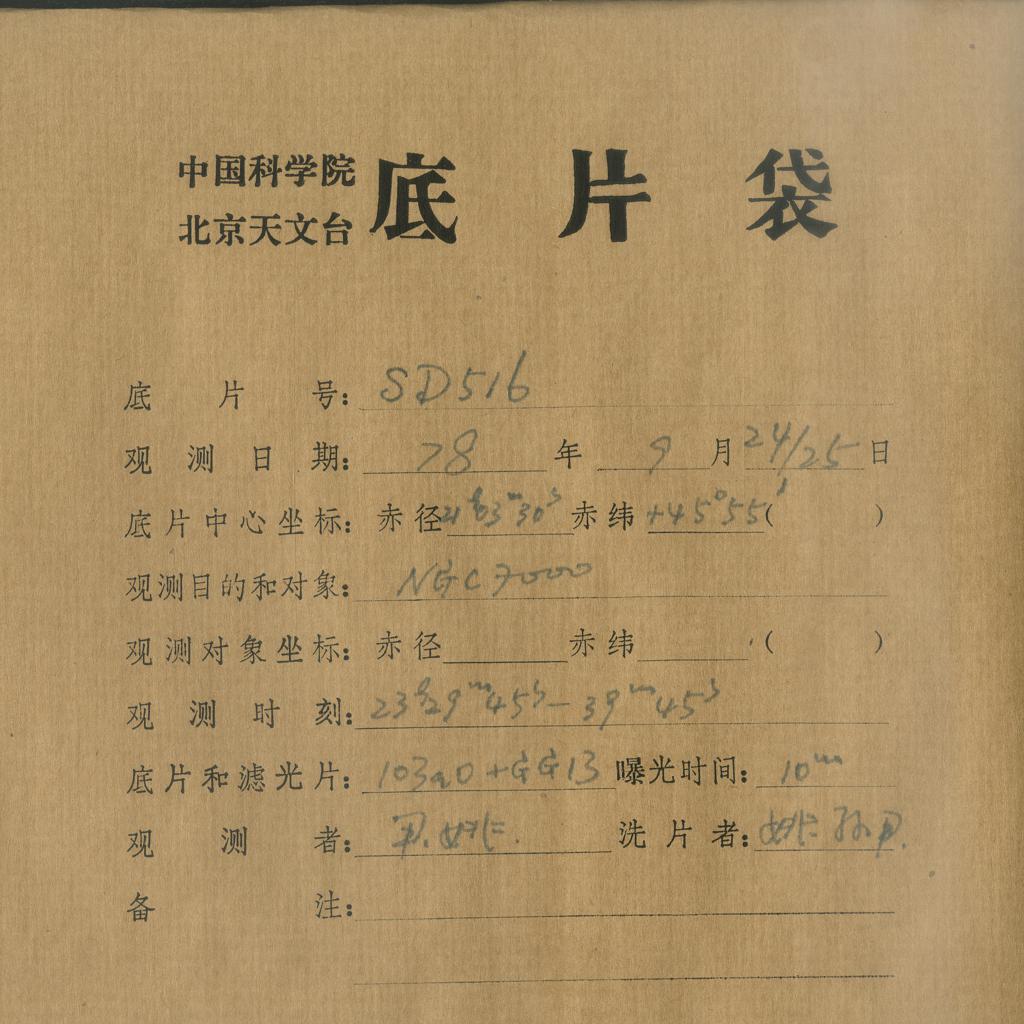 中国科学院
北京天文台 底片袋
底片号: SD516
观测日期: 78年 9月24/25日
底片中心坐标: 赤径21ʰ03ᵐ30ˢ 赤纬+45°55′( )
观测目的和对象: NGC7000
观测对象坐标: 赤径 赤纬 ( )
观测时刻: 23ʰ29ᵐ45ˢ—39ᵐ45ˢ
底片和滤光片: 103aO+GG13 曝光时间: 10ᵐ
观测者: 姚. 洗片者: 姚 孙
备注: